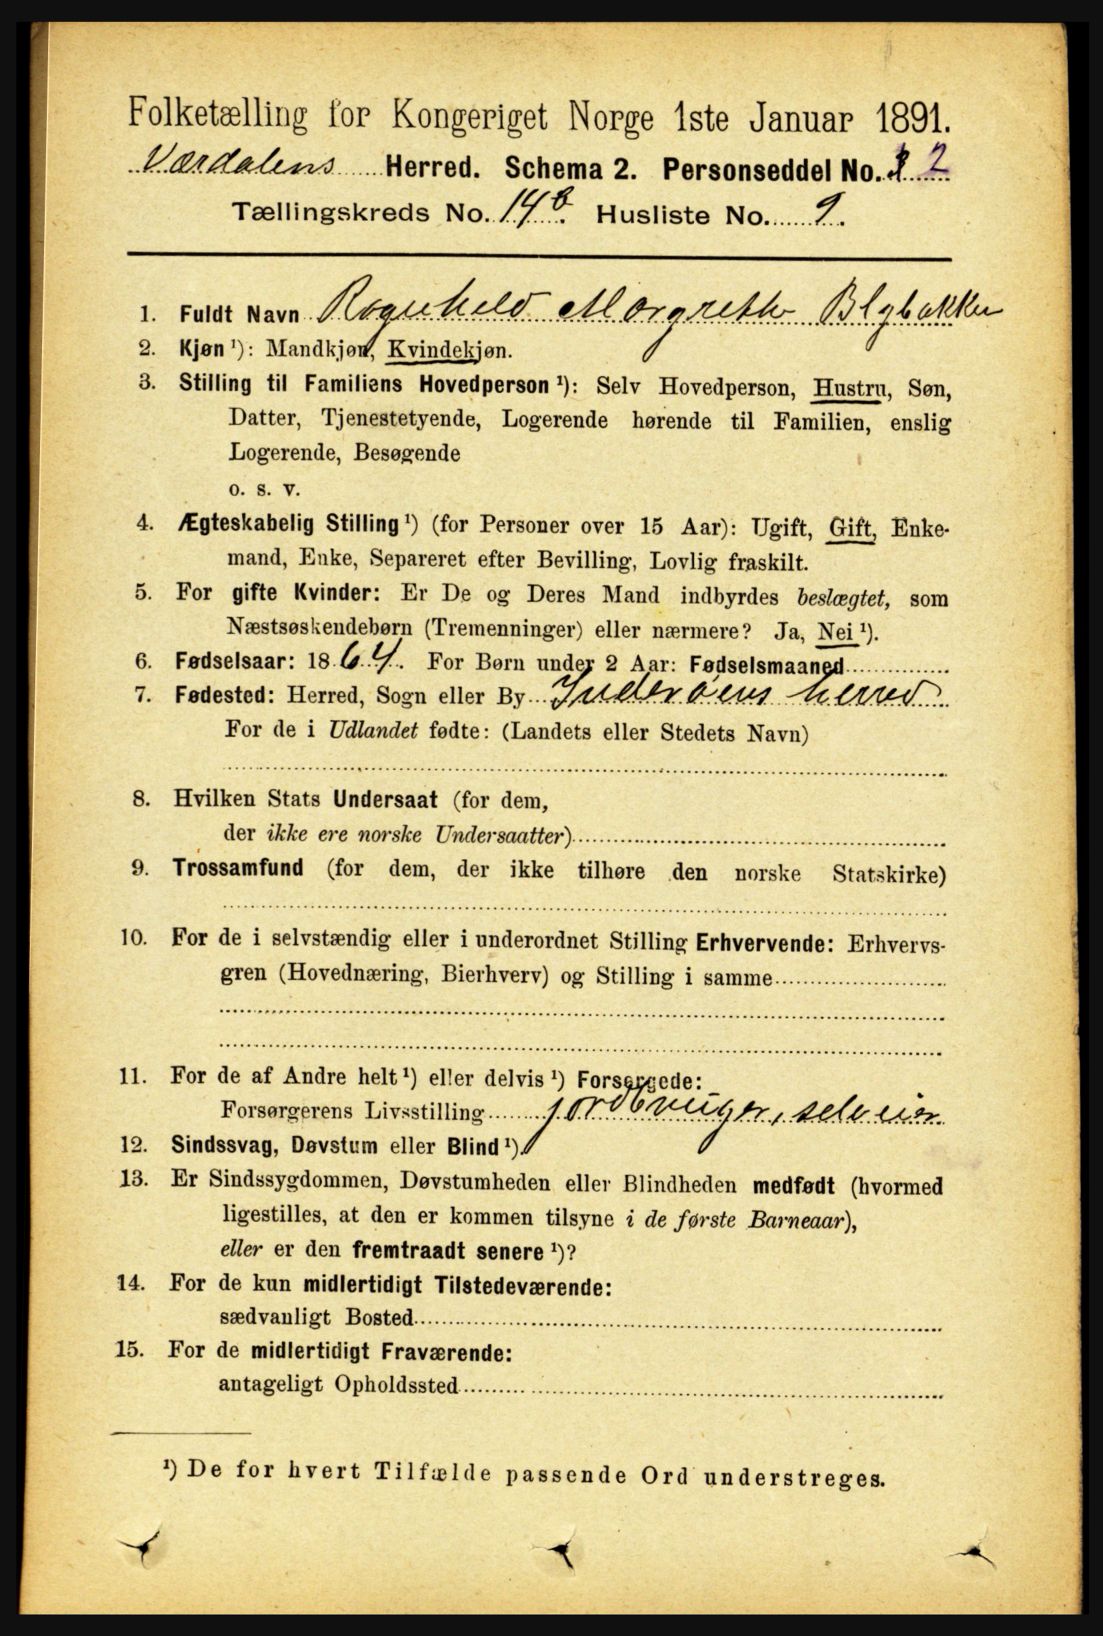 Folketælling for Kongeriget Norge 1ste Januar 1891.
Værdalens Herred. Schema 2. Personseddel No. 2
Tællingskreds No. 14 b. Husliste No. 9.
1. Fuldt Navn Ragnhild Margrethe Blybakken
2. Kjøn ¹): Mandkjøn, Kvindekjøn.
3. Stilling til Familiens Hovedperson ¹): Selv Hovedperson, Hustru, Søn,
Datter, Tjenestetyende, Logerende hørende til Familien, enslig
Logerende, Besøgende
o. s. v.
4. Ægteskabelig Stilling ¹) (for Personer over 15 Aar): Ugift, Gift, Enke-
mand, Enke, Separeret efter Bevilling, Lovlig fraskilt.
5. For gifte Kvinder: Er De og Deres Mand indbyrdes beslægtet, som
Næstsøskendebørn (Tremenninger) eller nærmere? Ja, Nei ¹).
6. Fødselsaar: 1864. For Børn under 2 Aar: Fødselsmaaned
7. Fødested: Herred, Sogn eller By Inderøens herred
For de i Udlandet fødte: (Landets eller Stedets Navn)
8. Hvilken Stats Undersaat (for dem,
der ikke ere norske Undersaatter)
9. Trossamfund (for dem, der ikke tilhøre den norske Statskirke)
10. For de i selvstændig eller i underordnet Stilling Erhvervende: Erhvervs-
gren (Hovednæring, Bierhverv) og Stilling i samme
11. For de af Andre helt ¹) eller delvis ¹) Forsørgede:
Forsørgerens Livsstilling jordbruger, selveier
12. Sindssvag, Døvstum eller Blind ¹).
13. Er Sindssygdommen, Døvstumheden eller Blindheden medfødt (hvormed
ligestilles, at den er kommen tilsyne i de første Barneaar),
eller er den fremtraadt senere ¹)?
14. For de kun midlertidigt Tilstedeværende:
sædvanligt Bosted
15. For de midlertidigt Fraværende:
antageligt Opholdssted
¹) De for hvert Tilfælde passende Ord understreges.